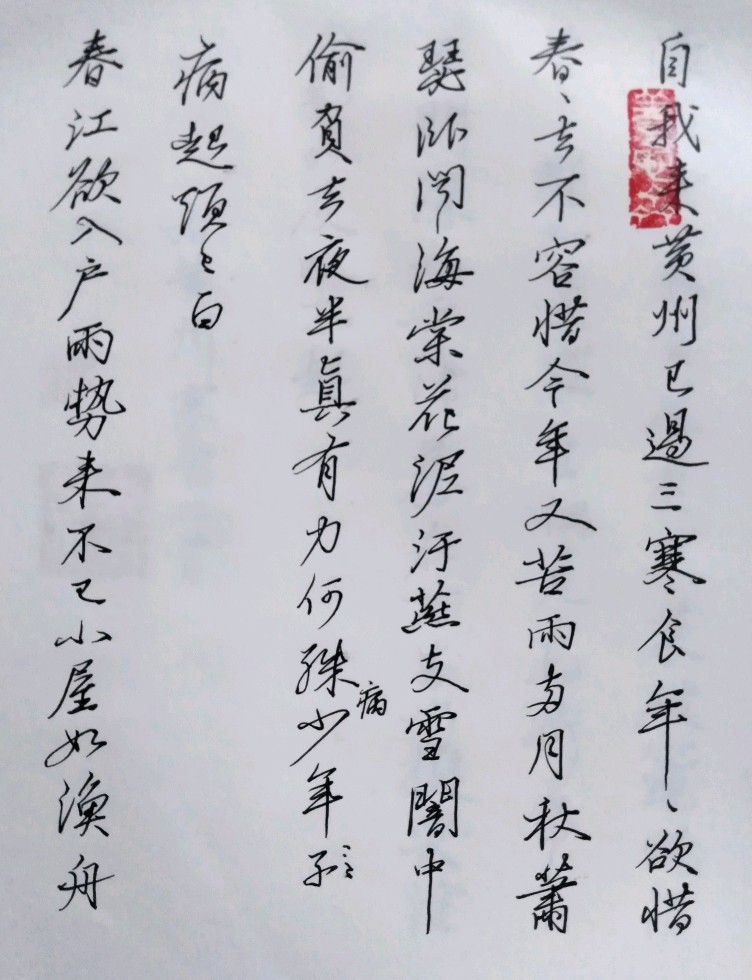 自我来黄州已過三寒食年、欲惜
春、去不容惜今年又苦雨兩月秋蕭
瑟卧聞海棠花泥汙燕支雪闇中
偷負去夜半真有力何殊少年子
病
病起頭已白
春江欲入户雨勢来不已小屋如漁舟